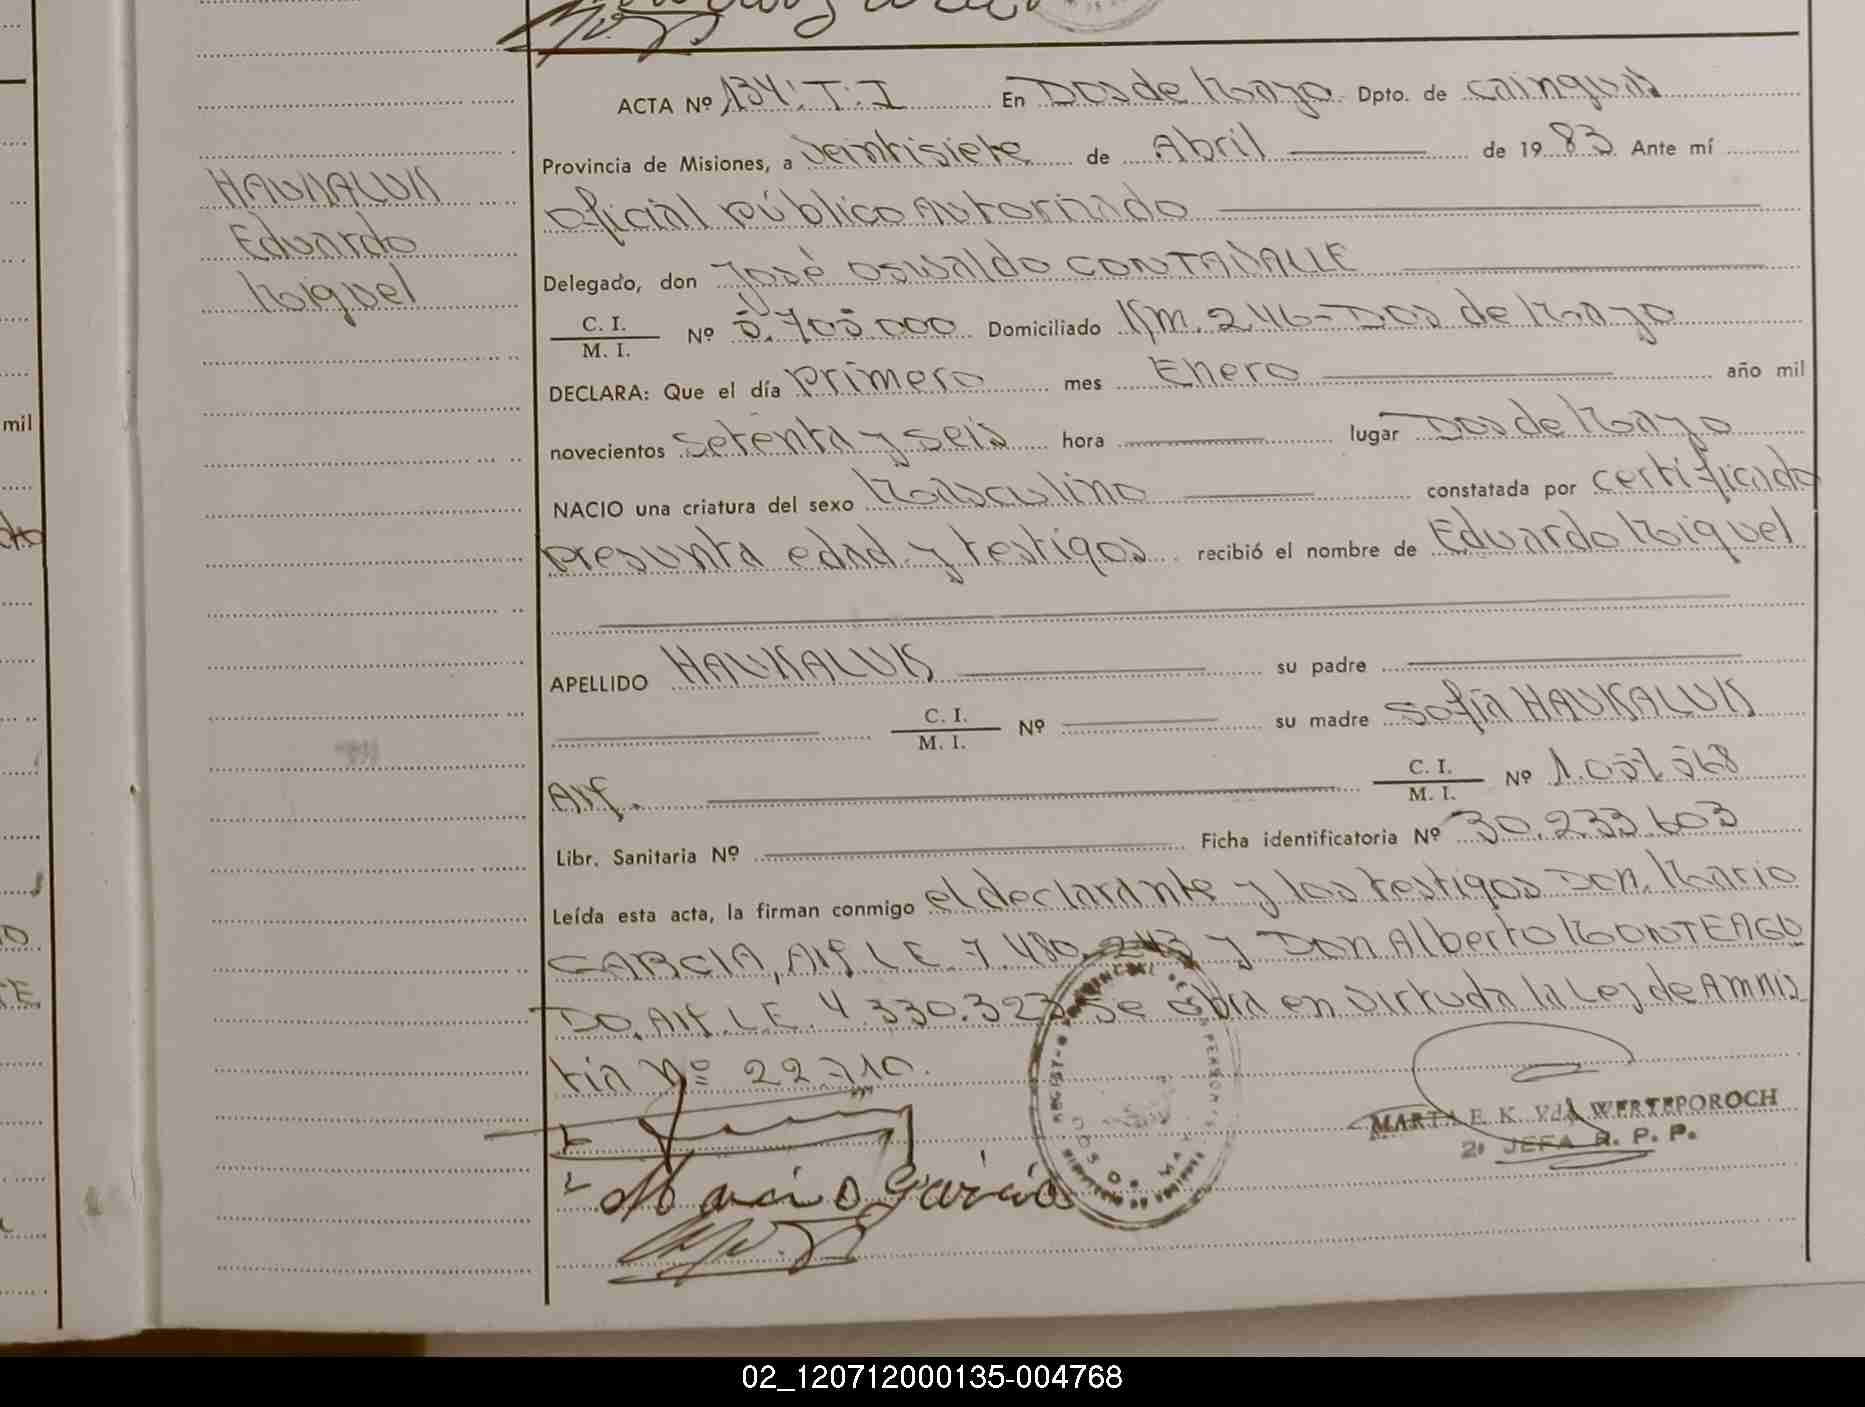 ACTA Nº 134: T: I En Dos de Mayo Dpto. de Cainguas
Provincia de Misiones, a veintisiete de Abril de 1983 Ante mí
HAUKALUK
oficial público autorizado
Eduardo
Delegado, don José Oswaldo CONTAVALLE
Miguel
C. I. / M. I. Nº 5.705.000 Domiciliado Km. 246-Dos de Mayo
DECLARA: Que el día primero mes Enero año mil
mil
novecientos setenta y seis hora lugar Dos de Mayo
NACIO una criatura del sexo Masculino constatada por certificado
presunta edad y testigos recibió el nombre de Eduardo Miguel
APELLIDO HAUKALUK su padre
C. I. / M. I. Nº su madre Sofía HAUKALUK
Arg. C. I. / M. I. Nº 1.057.568
Libr. Sanitaria Nº Ficha identificatoria Nº 30.233.603
Leída esta acta, la firman conmigo el declarante y los testigos Don. Mario
GARCIA, Arg. L E. 7.480.243 y Don Alberto MONTEAGU
DO. Arg. L.E. 4.330.323 se obra en virtud a la Ley de Amnis
tia Nº 22.710.
MARTA E. K. Vda. WERTEPOROCH
JEFA R. P. P.
Mario García
02_120712000135-004768